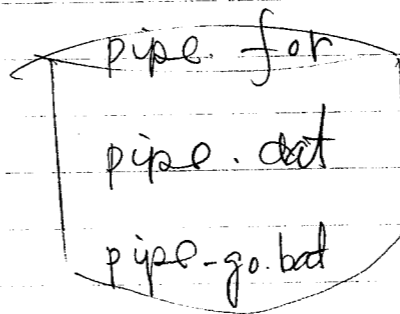 pipe.for
pipe.dat
pipe-go.bat